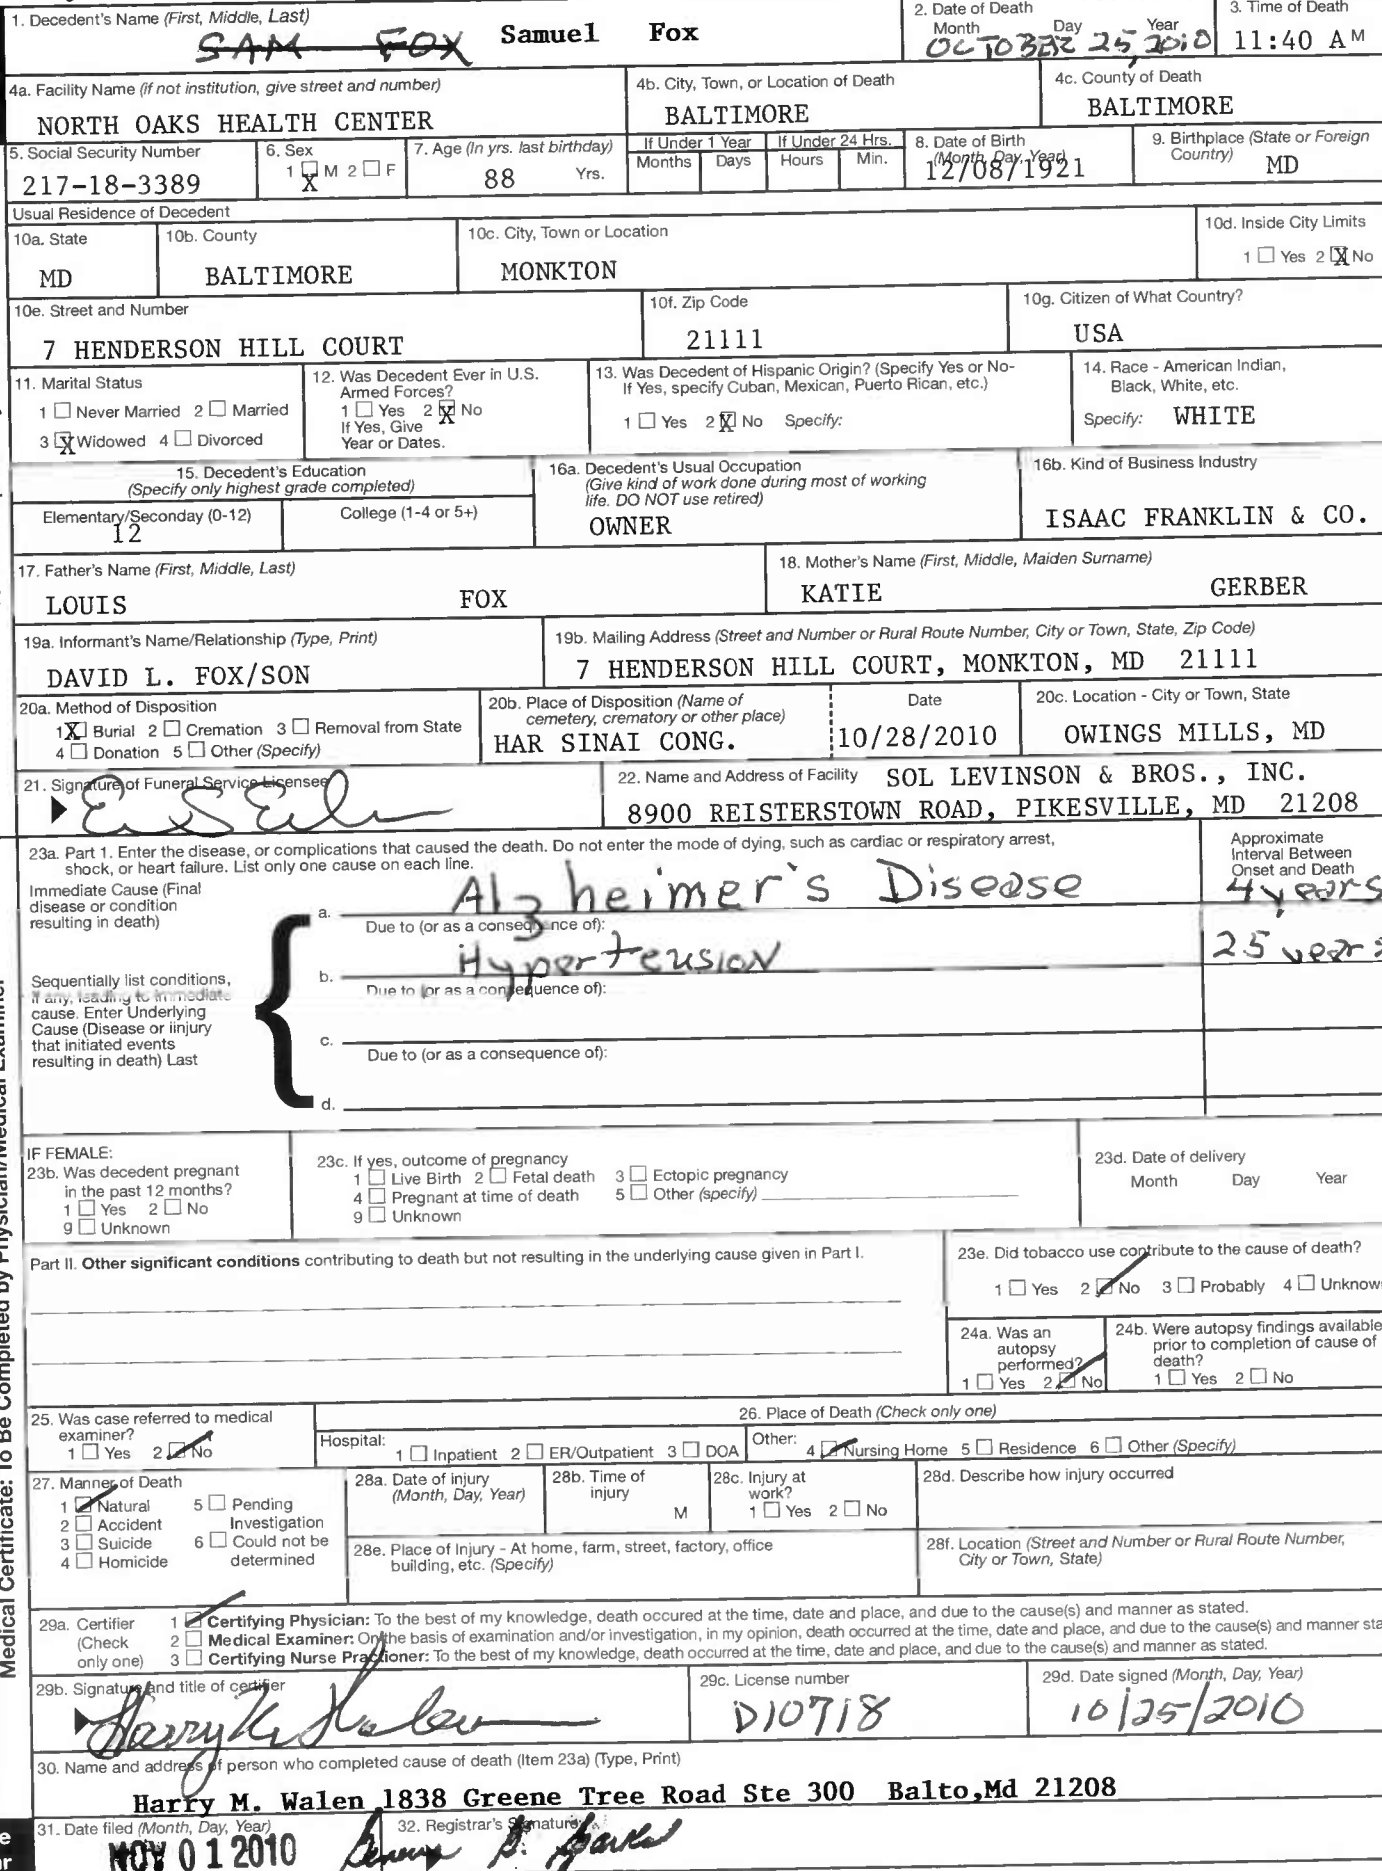 1. Decedent's Name (First, Middle, Last)
SAM FOX Samuel Fox
2. Date of Death
Month Day Year
OCTOBER 25, 2010
3. Time of Death
11:40 A M
4a. Facility Name (if not institution, give street and number)
NORTH OAKS HEALTH CENTER
4b. City, Town, or Location of Death
BALTIMORE
4c. County of Death
BALTIMORE
5. Social Security Number
217-18-3389
6. Sex
1 X M 2 ☐ F
7. Age (In yrs. last birthday)
88 Yrs.
If Under 1 Year
Months Days
If Under 24 Hrs.
Hours Min.
8. Date of Birth
(Month, Day, Year)
12/08/1921
9. Birthplace (State or Foreign
Country)
MD
Usual Residence of Decedent
10a. State
MD
10b. County
BALTIMORE
10c. City, Town or Location
MONKTON
10d. Inside City Limits
1 ☐ Yes 2 X No
10e. Street and Number
7 HENDERSON HILL COURT
10f. Zip Code
21111
10g. Citizen of What Country?
USA
11. Marital Status
1 ☐ Never Married 2 ☐ Married
3 X Widowed 4 ☐ Divorced
12. Was Decedent Ever in U.S.
Armed Forces?
1 ☐ Yes 2 X No
If Yes, Give
Year or Dates.
13. Was Decedent of Hispanic Origin? (Specify Yes or No-
If Yes, specify Cuban, Mexican, Puerto Rican, etc.)
1 ☐ Yes 2 X No Specify:
14. Race - American Indian,
Black, White, etc.
Specify: WHITE
15. Decedent's Education
(Specify only highest grade completed)
Elementary/Seconday (0-12)
12
College (1-4 or 5+)
16a. Decedent's Usual Occupation
(Give kind of work done during most of working
life. DO NOT use retired)
OWNER
16b. Kind of Business Industry
ISAAC FRANKLIN & CO.
17. Father's Name (First, Middle, Last)
LOUIS FOX
18. Mother's Name (First, Middle, Maiden Surname)
KATIE GERBER
19a. Informant's Name/Relationship (Type, Print)
DAVID L. FOX/SON
19b. Mailing Address (Street and Number or Rural Route Number, City or Town, State, Zip Code)
7 HENDERSON HILL COURT, MONKTON, MD 21111
20a. Method of Disposition
1 X Burial 2 ☐ Cremation 3 ☐ Removal from State
4 ☐ Donation 5 ☐ Other (Specify)
20b. Place of Disposition (Name of
cemetery, crematory or other place)
HAR SINAI CONG.
Date
10/28/2010
20c. Location - City or Town, State
OWINGS MILLS, MD
21. Signature of Funeral Service Licensee
22. Name and Address of Facility SOL LEVINSON & BROS., INC.
8900 REISTERSTOWN ROAD, PIKESVILLE, MD 21208
23a. Part 1. Enter the disease, or complications that caused the death. Do not enter the mode of dying, such as cardiac or respiratory arrest,
shock, or heart failure. List only one cause on each line.
Approximate
Interval Between
Onset and Death
Immediate Cause (Final
disease or condition
resulting in death)
a. Alzheimer's Disease 4 years
Due to (or as a consequence of):
b. Hypertension 25 years
Due to (or as a consequence of):
Sequentially list conditions,
if any, leading to immediate
cause. Enter Underlying
Cause (Disease or iinjury
that initiated events
resulting in death) Last
c.
Due to (or as a consequence of):
d.
IF FEMALE:
23b. Was decedent pregnant
in the past 12 months?
1 ☐ Yes 2 ☐ No
9 ☐ Unknown
23c. If yes, outcome of pregnancy
1 ☐ Live Birth 2 ☐ Fetal death 3 ☐ Ectopic pregnancy
4 ☐ Pregnant at time of death 5 ☐ Other (specify)
9 ☐ Unknown
23d. Date of delivery
Month Day Year
Part II. Other significant conditions contributing to death but not resulting in the underlying cause given in Part I.
23e. Did tobacco use contribute to the cause of death?
1 ☐ Yes 2 ☑ No 3 ☐ Probably 4 ☐ Unknow
24a. Was an
autopsy
performed?
1 ☐ Yes 2 ☑ No
24b. Were autopsy findings available
prior to completion of cause of
death?
1 ☐ Yes 2 ☐ No
25. Was case referred to medical
examiner?
1 ☐ Yes 2 ☑ No
26. Place of Death (Check only one)
Hospital: 1 ☐ Inpatient 2 ☐ ER/Outpatient 3 ☐ DOA Other: 4 ☑ Nursing Home 5 ☐ Residence 6 ☐ Other (Specify)
27. Manner of Death
1 ☑ Natural 5 ☐ Pending
2 ☐ Accident Investigation
3 ☐ Suicide 6 ☐ Could not be
4 ☐ Homicide determined
28a. Date of injury
(Month, Day, Year)
28b. Time of
injury
M
28c. Injury at
work?
1 ☐ Yes 2 ☐ No
28d. Describe how injury occurred
28e. Place of Injury - At home, farm, street, factory, office
building, etc. (Specify)
28f. Location (Street and Number or Rural Route Number,
City or Town, State)
29a. Certifier
(Check
only one)
1 ☑ Certifying Physician: To the best of my knowledge, death occured at the time, date and place, and due to the cause(s) and manner as stated.
2 ☐ Medical Examiner: On the basis of examination and/or investigation, in my opinion, death occurred at the time, date and place, and due to the cause(s) and manner sta
3 ☐ Certifying Nurse Practioner: To the best of my knowledge, death occurred at the time, date and place, and due to the cause(s) and manner as stated.
29b. Signature and title of certifier
29c. License number
D10718
29d. Date signed (Month, Day, Year)
10/25/2010
30. Name and address of person who completed cause of death (Item 23a) (Type, Print)
Harry M. Walen 1838 Greene Tree Road Ste 300 Balto,Md 21208
31. Date filed (Month, Day, Year)
NOV 01 2010
32. Registrar's Signature
Medical Certificate: To Be Completed by Physician/Medical Examiner